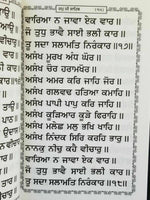 ਜਪੁ ਜੀ ਸਾਹਿਬ
ਵਾਰਿਆ ਨ ਜਾਵਾ ਏਕ ਵਾਰ ॥
ਜੋ ਤੁਧੁ ਭਾਵੈ ਸਾਈ ਭਲੀ ਕਾਰ ॥
ਤੂ ਸਦਾ ਸਲਾਮਤਿ ਨਿਰੰਕਾਰ ॥੧੭॥
ਅਸੰਖ ਮੂਰਖ ਅੰਧ ਘੋਰ ॥
ਅਸੰਖ ਚੋਰ ਹਰਾਮਖੋਰ ॥
ਅਸੰਖ ਅਮਰ ਕਰਿ ਜਾਹਿ ਜੋਰ ॥
ਅਸੰਖ ਗਲਵਢ ਹਤਿਆ ਕਮਾਹਿ ॥
ਅਸੰਖ ਪਾਪੀ ਪਾਪੁ ਕਰਿ ਜਾਹਿ ॥
ਅਸੰਖ ਕੂੜਿਆਰ ਕੂੜੇ ਫਿਰਾਹਿ ॥
ਅਸੰਖ ਮਲੇਛ ਮਲੁ ਭਖਿ ਖਾਹਿ ॥
ਅਸੰਖ ਨਿੰਦਕ ਸਿਰਿ ਕਰਹਿ ਭਾਰੁ ॥
ਨਾਨਕੁ ਨੀਚੁ ਕਹੈ ਵੀਚਾਰੁ ॥
ਵਾਰਿਆ ਨ ਜਾਵਾ ਏਕ ਵਾਰ ॥
ਜੋ ਤੁਧੁ ਭਾਵੈ ਸਾਈ ਭਲੀ ਕਾਰ ॥
ਤੂ ਸਦਾ ਸਲਾਮਤਿ ਨਿਰੰਕਾਰ ॥੧੮॥